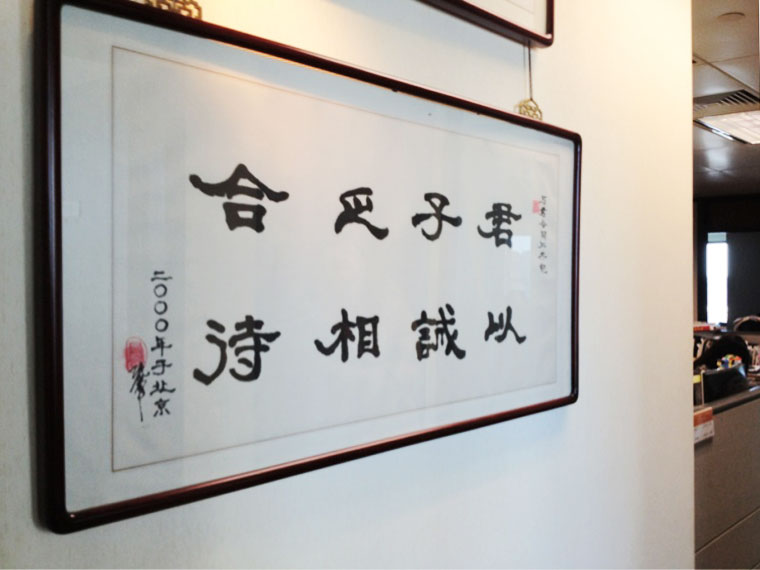 君子之合
以誠相待
二〇〇〇年于北京